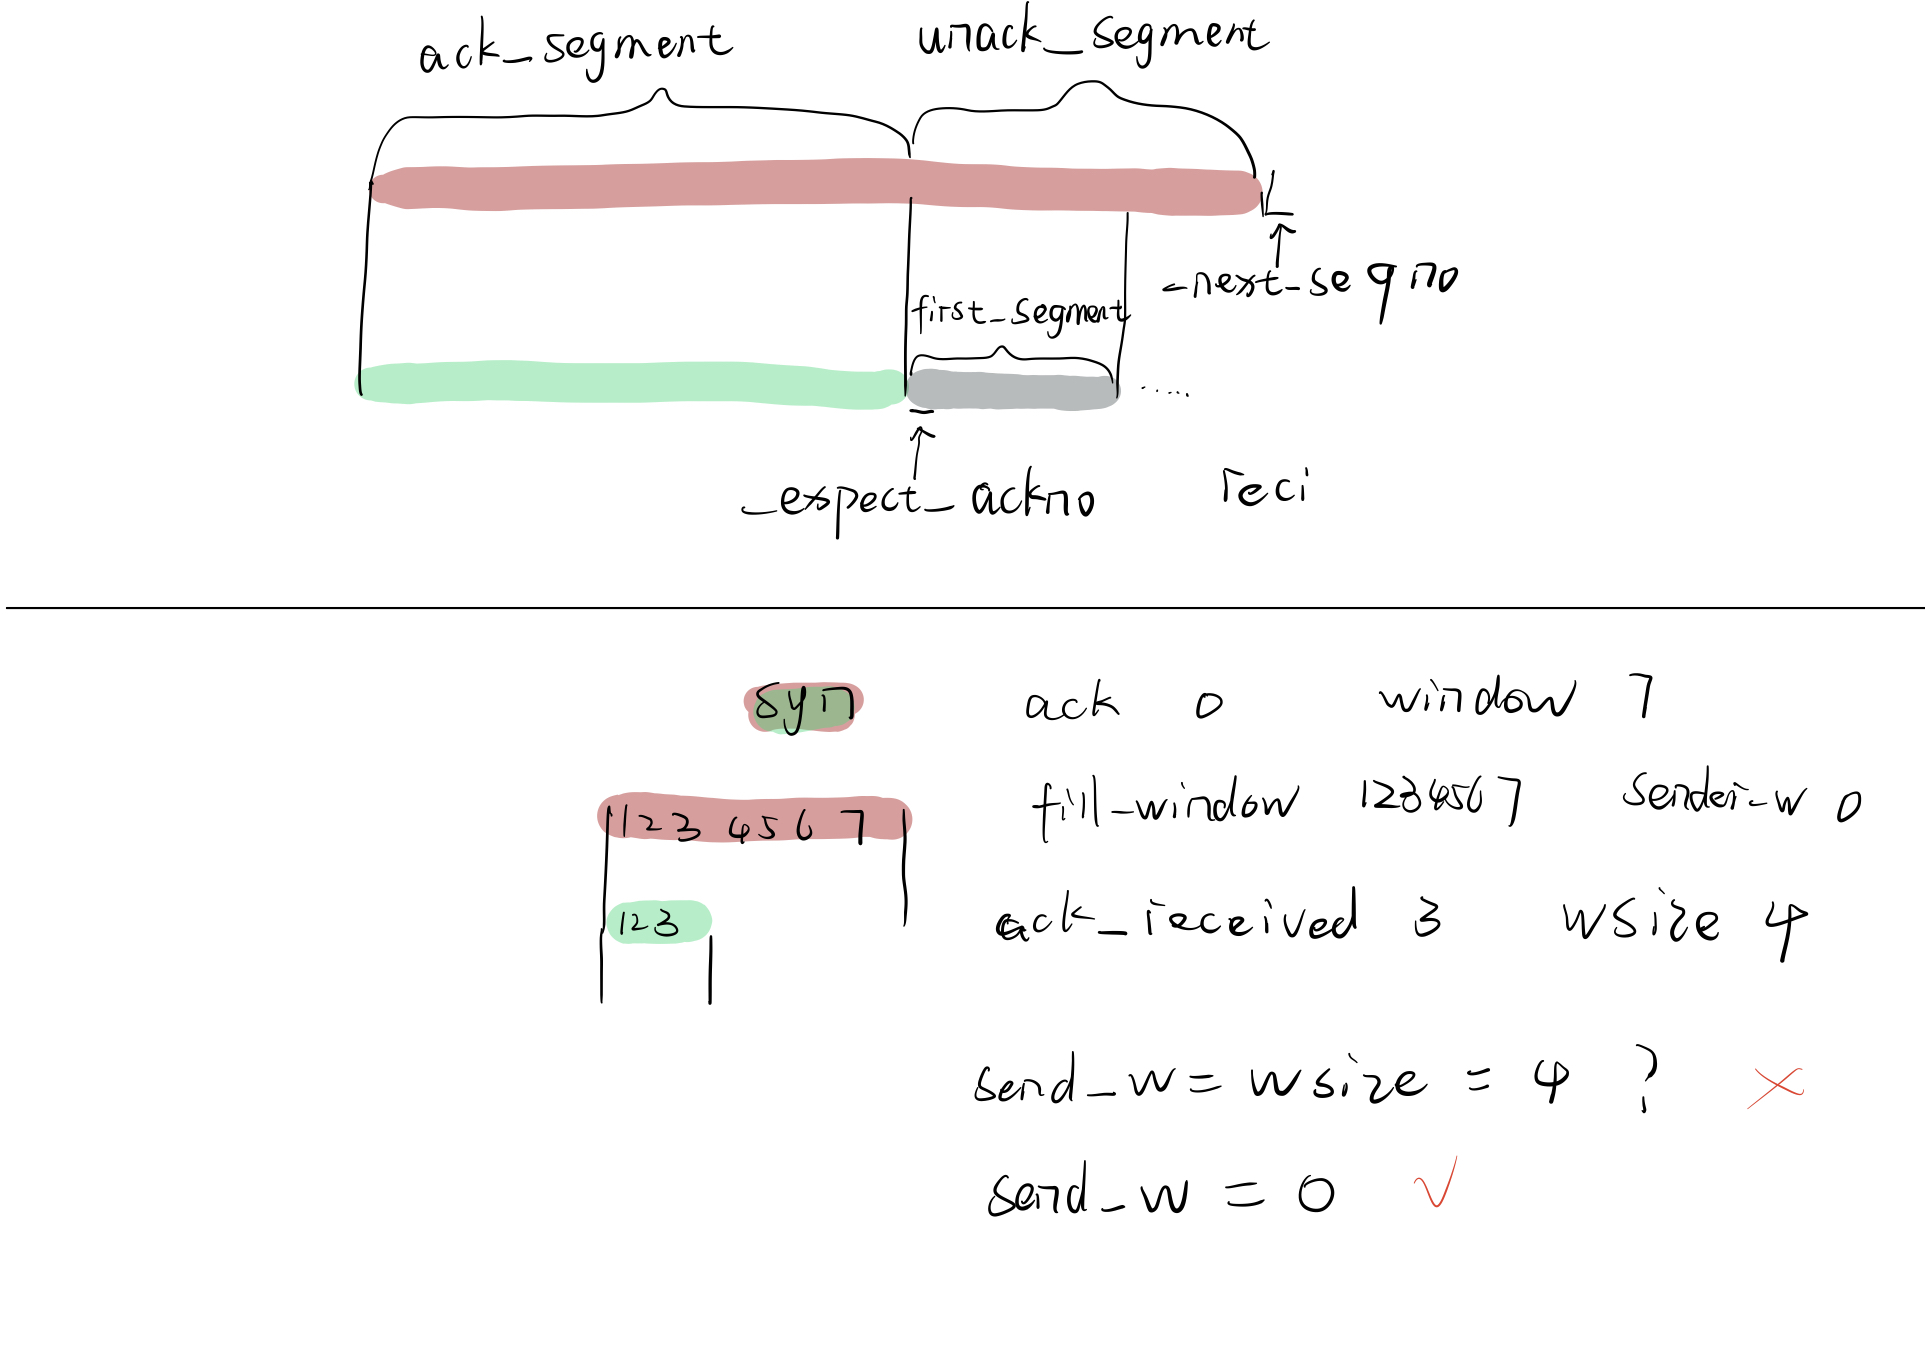 ack_segment unack_segment
_next_seqno
first_segment
.....
_expect_ackno reci
syn ack 0 window 7
1234567 fill_window 1234567 sender_w 0
123 ack_received 3 wsize 4
send_w = wsize = 4 ? ×
send_w = 0 √